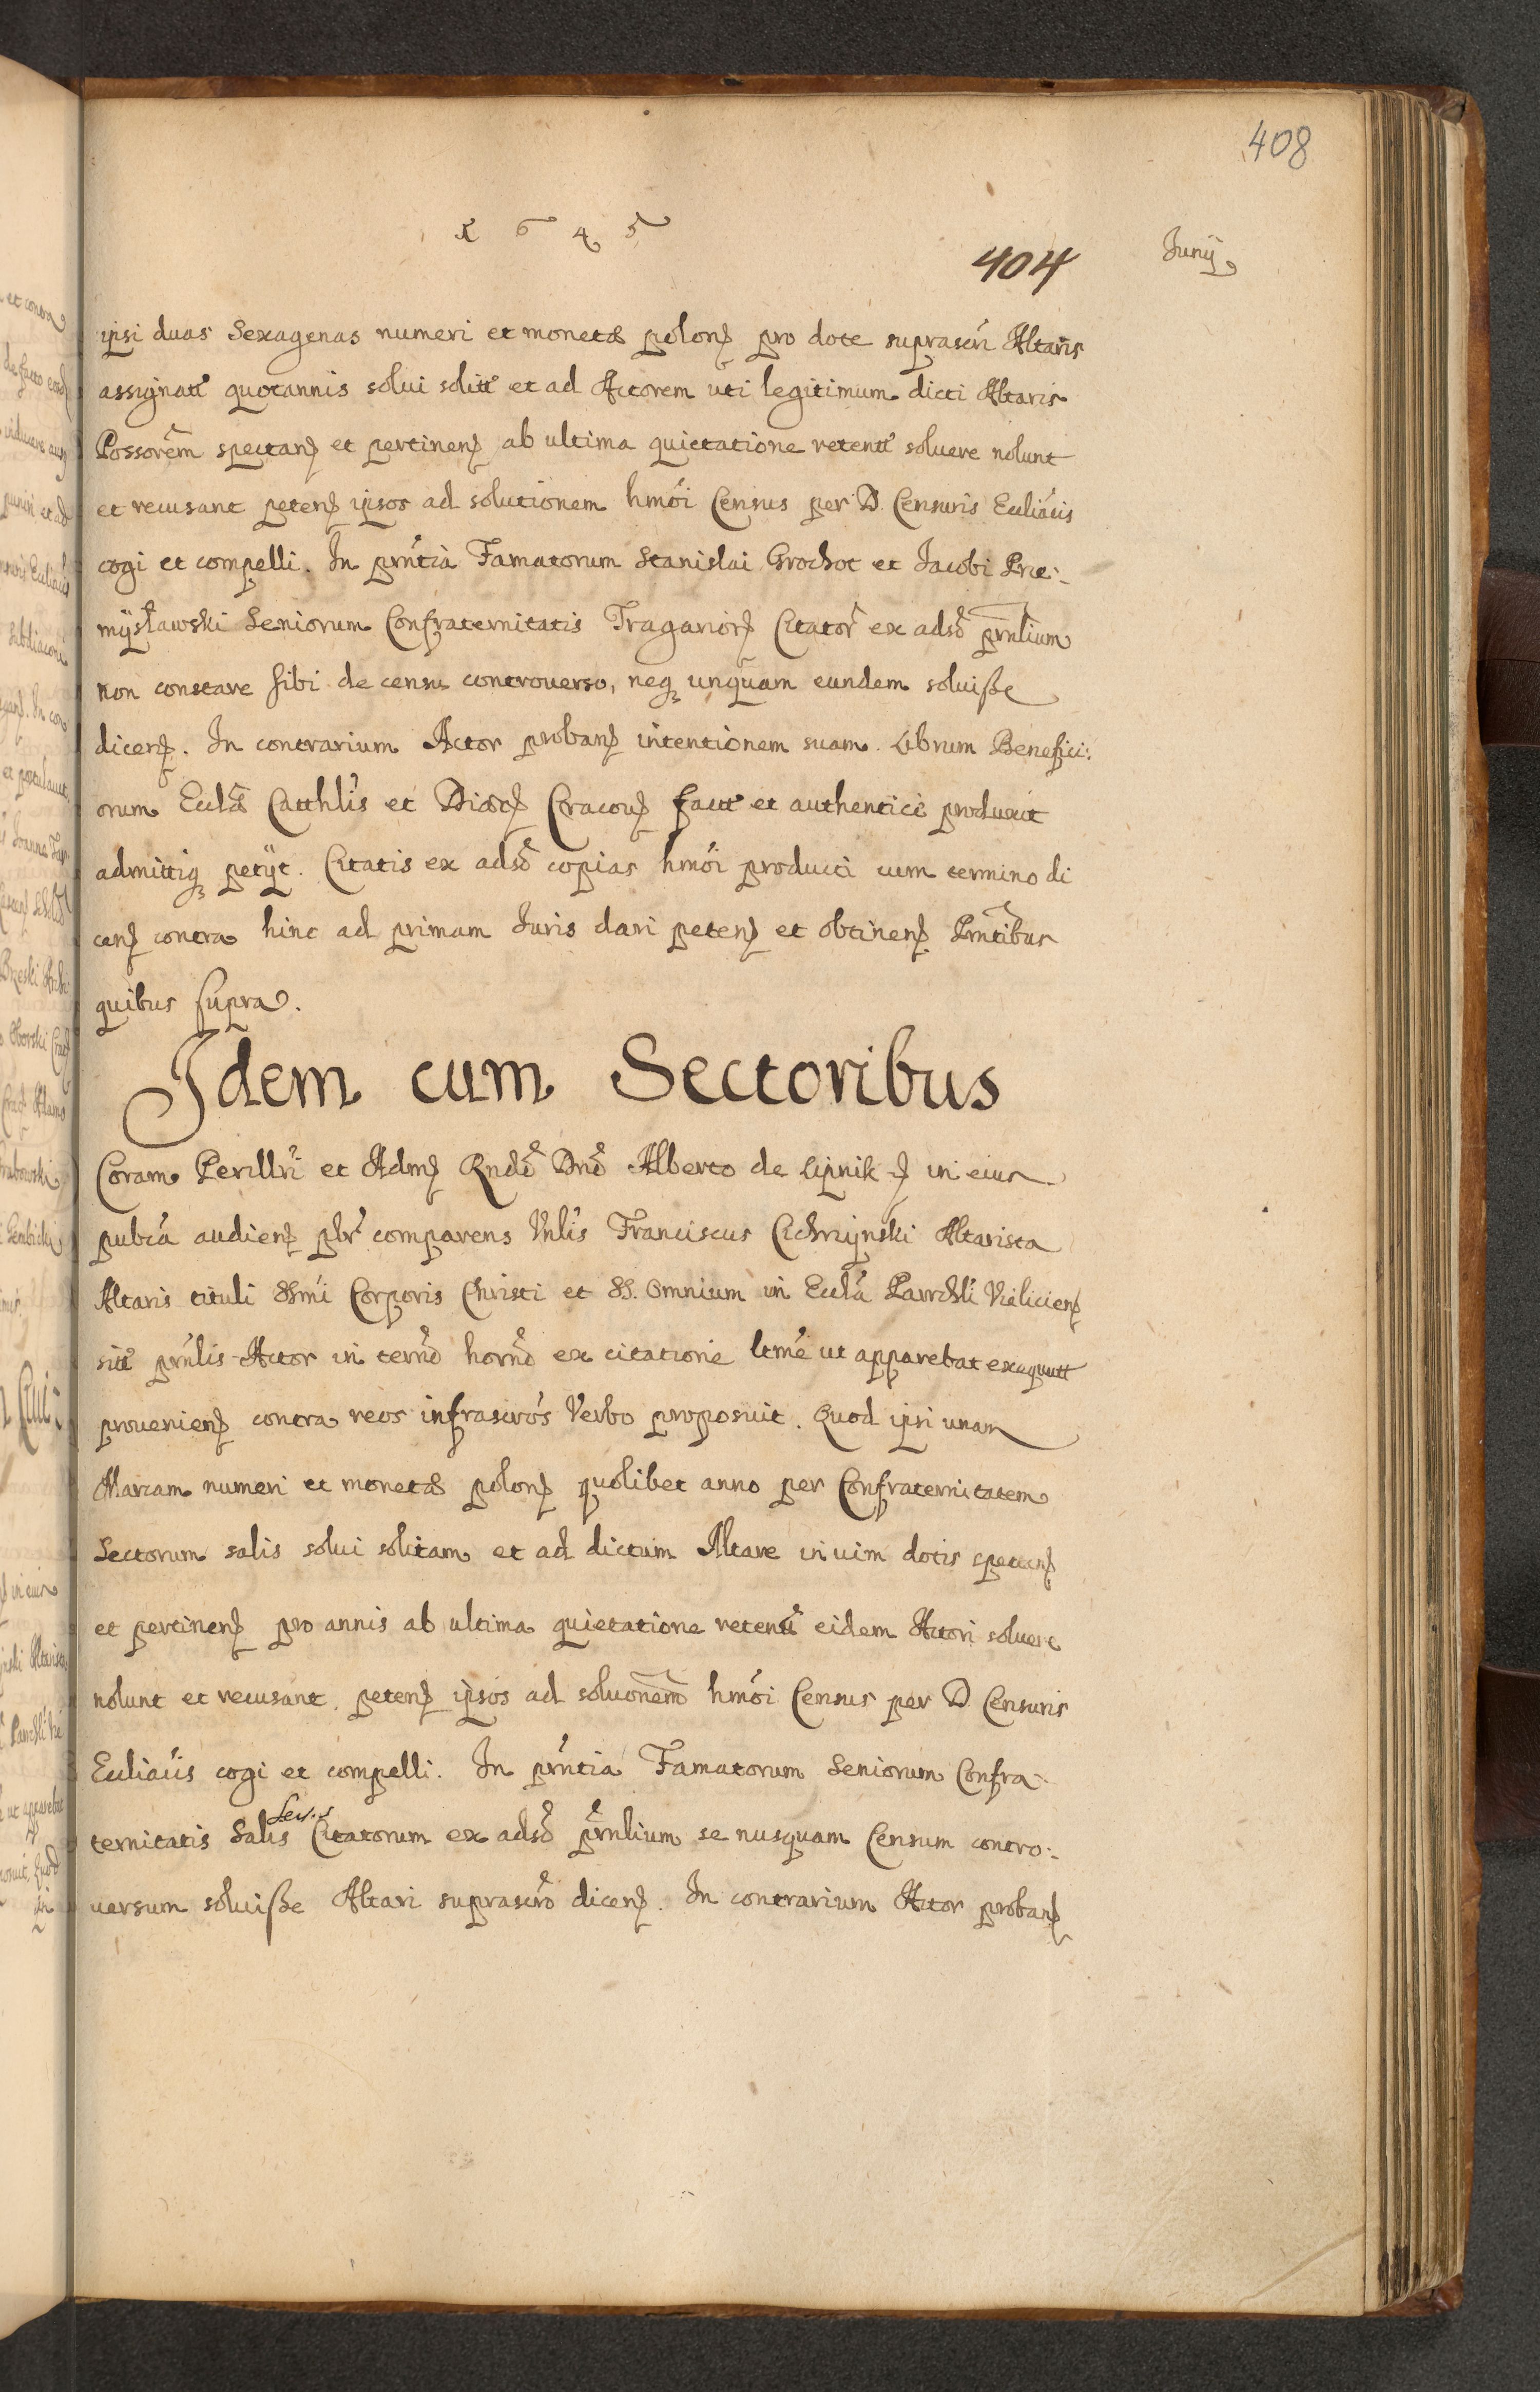 408
1645
404 Junÿ
ipsi duas Sexagenas numeri et monetæ polon̄ pro dote suprascri Altaris
assignatt quotannis solui solitt et ad Actorem uti legitimum dicti Altaris
Possorem spectan et pertinen ab ultima quietatione retentt soluere nolunt
et recusant peten ipsos ad solutionem hmoi Census per D. Censuris Ecclîacis
cogi et compelli. In prntia Famatorum Stanislai Grochot et Jacobi Prze:
mÿsławski Seniorum Confraternitatis Tragarior Citator ex adso prnlium
non constare sibi de censu controuerso, neq unquam eundem soluiße
dicen. In contrarium Actor proban intentionem suam. Librum Benefici:
orum Ecclæ Catthlis et Diæc Cracouien factt et authentice produxit
admittiq petÿt. Citatis ex adso copias hmoi producti cum termino di
cen contra hinc ad primam Juris dari peten et obtinen Prntibus
quibus supra.
Idem cum Sectoribus
Coram Perillri et Adm Rndo Dno Alberto de Lipnik in eius
publca audien plr comparens Vnlis Franciscus Cichrzÿnski Altarista
Altaris tituli SSmi Corporis Christi et SS. Omnium in Eccla Parrchli Vielicien
sitt prnlis Actor in termo horno ex citatione ltme ut apparebat exaquutt
prouenien contra reos infrascros Verbo proposuit. Quod ipsi unam
Marcam numeri et monetæ polon quolibet anno per Confraternitatem
Sectorum salis solui solitam et ad dictum Altare in uim dotis spectan
et pertinen pro annis ab ultima quietatione retentt eidem Actori soluere
nolunt et recusant, peten ipsos ad soluonem hmoi Census per D Censuris
Eccliacis cogi et compelli. In prntia Famatorum Seniorum Confra:
ternitatis Salis Citatorum ex adso prnlium se nusquam Censum contro:
uersum soluiße Altari suprascro dicen. In contrarium Actor proban